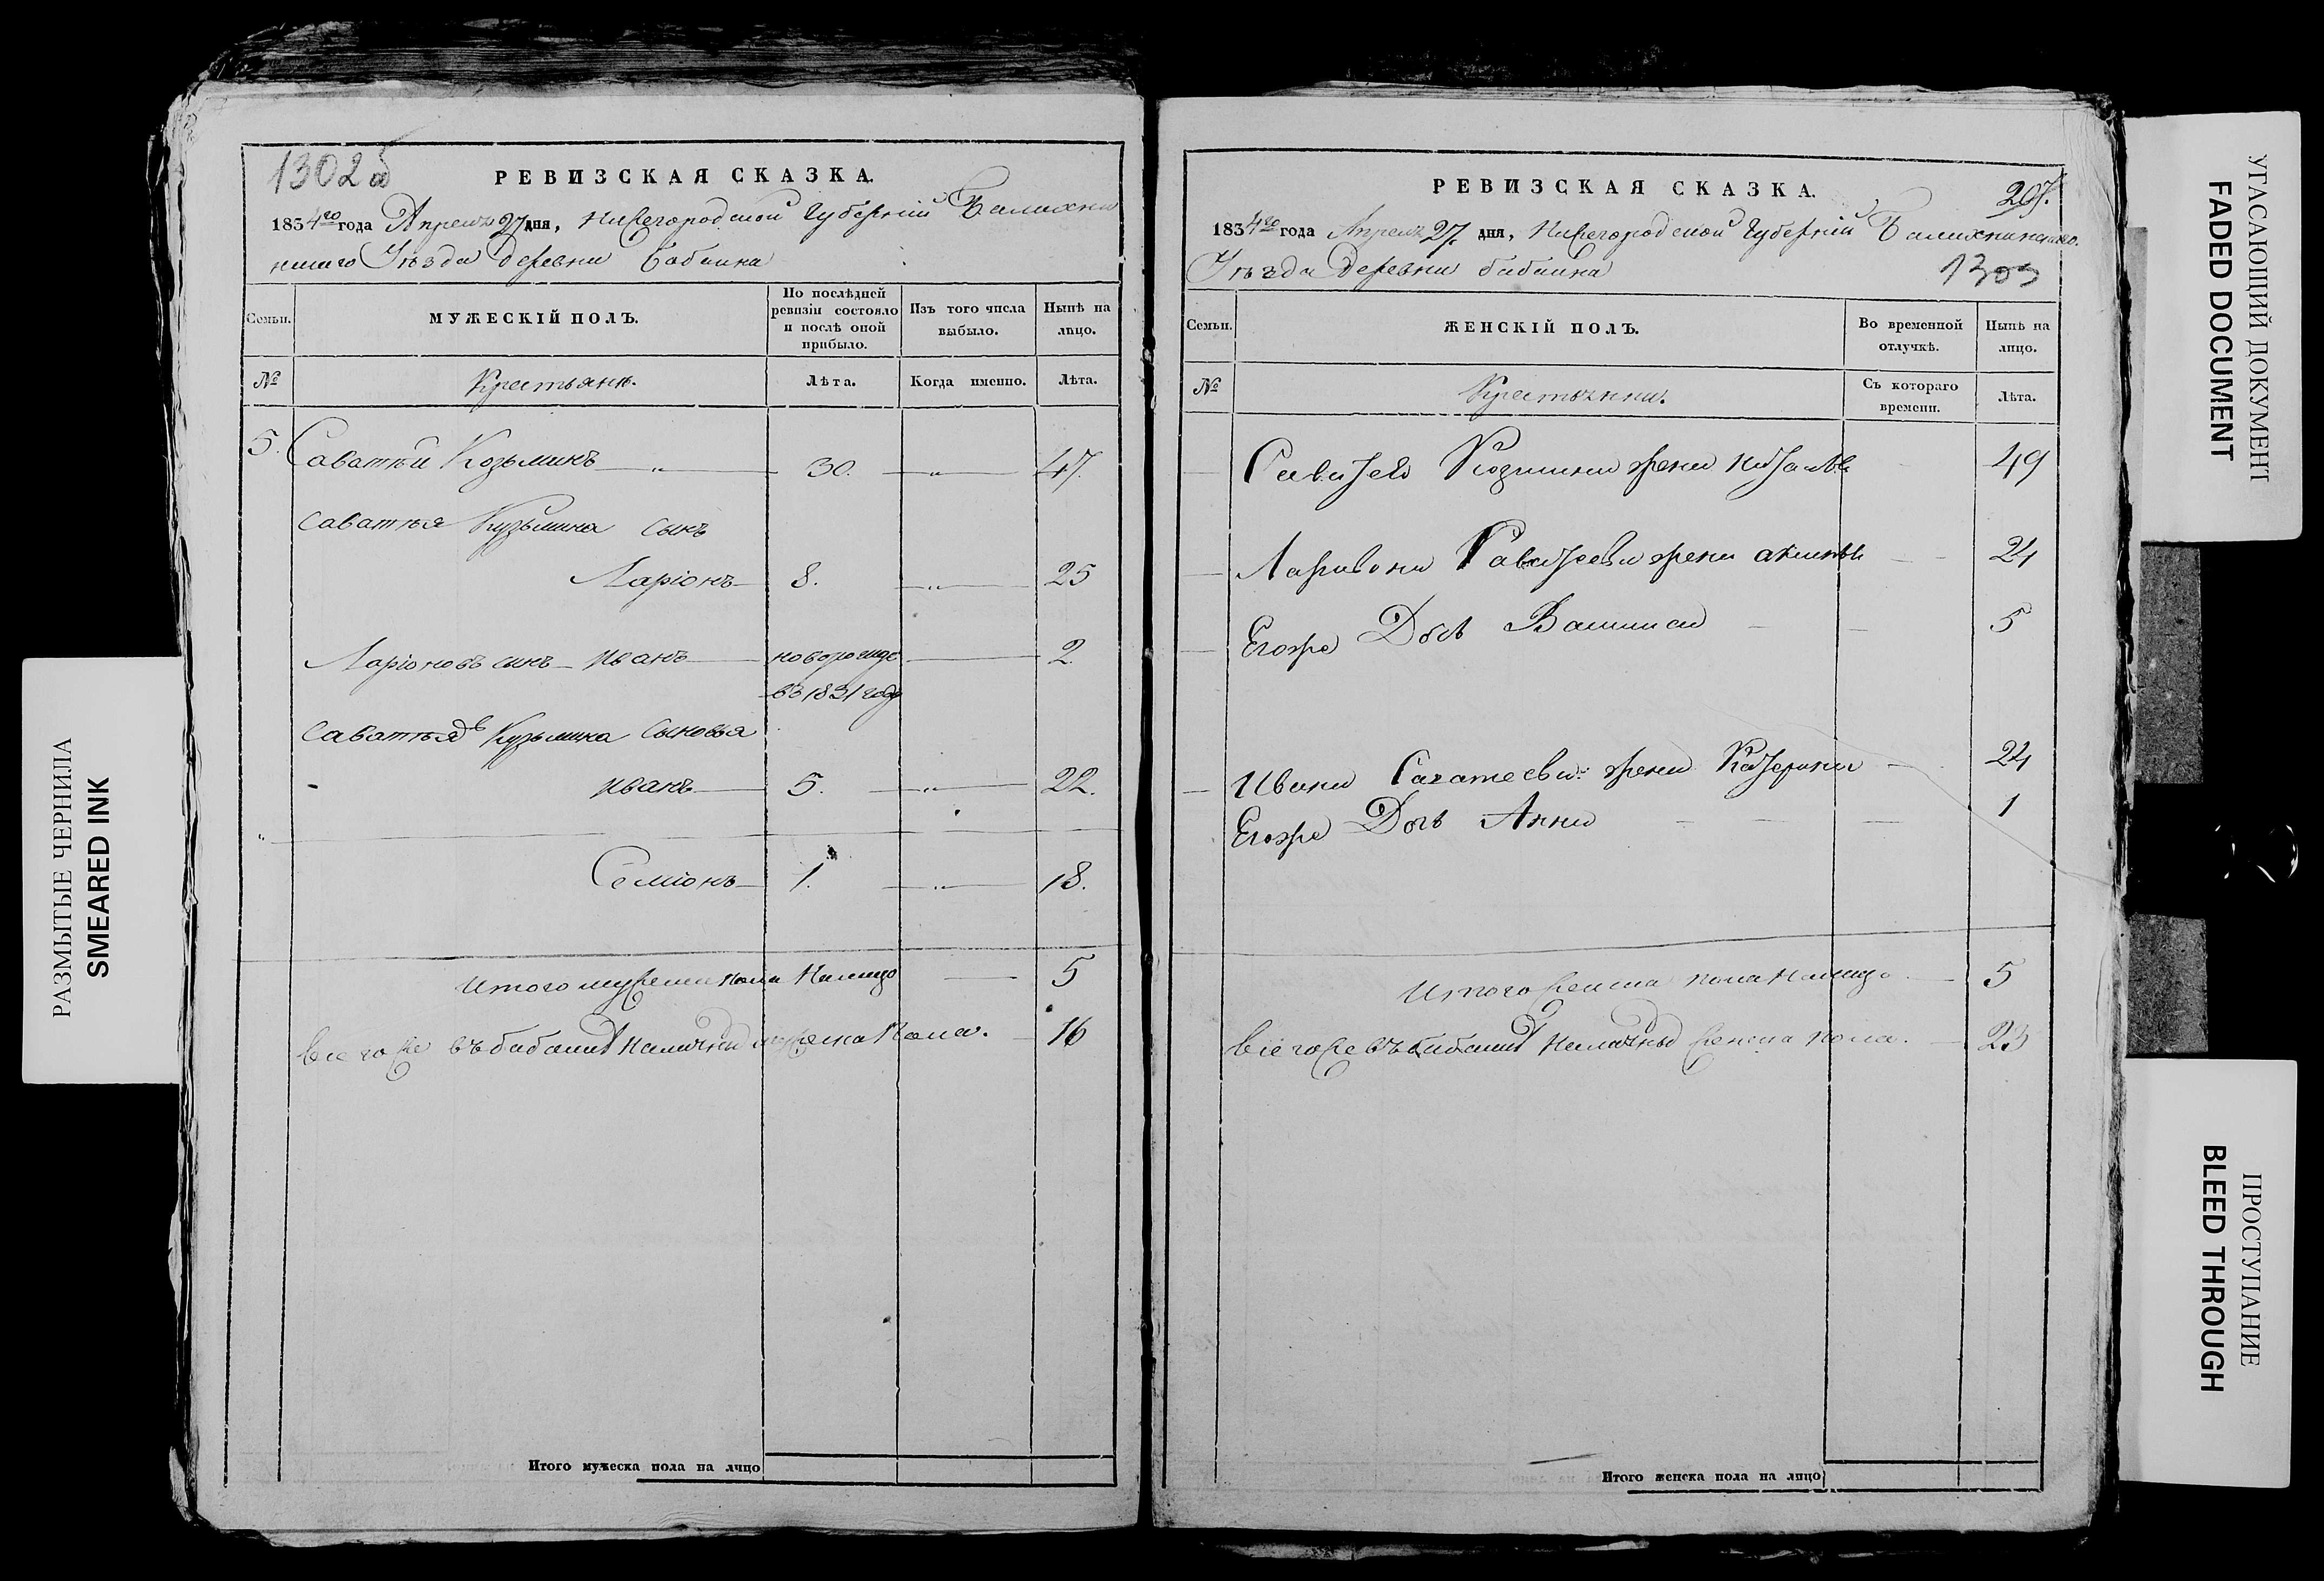 1302 об
РЕВИЗСКАЯ СКАЗКА.
1834го года Апреля 27 дня, Нижегородской Губерній Балахни
нскаго Уезда деревни Бабаина
Семьи.
МУЖЕСКІЙ ПОЛЪ.
По послѣдней ревизіи состояло и послѣ оной прибыло.
Изъ того числа выбыло.
Нынѣ на лицо.
№
Крестьяне.
Лѣта.
Когда именно.
Лѣта.
5. Саватѣй Козьминъ 30. 47.
Саватѣя Кузьмина сынъ
Ларіонъ 8. 25
Ларіоновъ сынъ Иванъ 2.
въ 1831 году
Саватѣя Кузьмина сыновья
Иванъ 5. 22.
Семіонъ 1. 18.
Итого мужеска пола налицо 5
Всего же въ бабаине наличных мужеска пола. 16
Итого мужеска пола на лицо
РЕВИЗСКАЯ СКАЗКА.
207.
1834го года Апреля 27. дня, Нижегородской Губерній Балахнинскаго.
Уезда Деревни бабаина
1303
Семьи.
ЖЕНСКІЙ ПОЛЪ.
Во временной отлучкѣ.
Нынѣ на лицо.
№
Крестьянки.
Съ котораго времени.
Лѣта.
Козмина жена 49
жена 24
Егоже Дочь 5
Ивана жена Катерина 24
Егоже Дочь Анна 1
Итого женска пола налицо 5
Всего же въ бабаине наличных женска пола. 23
Итого женска пола на лицо
РАЗМЫТЫЕ ЧЕРНИЛА
SMEARED INK
УГАСАЮЩИЙ ДОКУМЕНТ
FADED DOCUMENT
ПРОСТУПАНИЕ
BLEED THROUGH